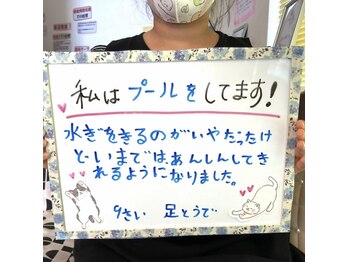 私はプールをしてます!
水ぎをきるのがいやだったけ
どいまではあんしんしてき
れるようになりました。
9さい 足とうで